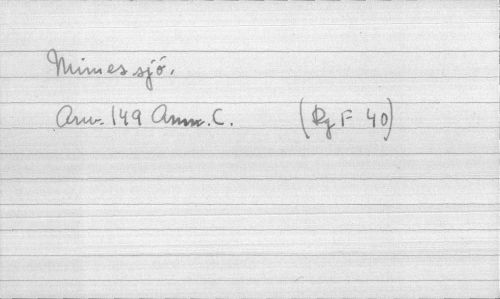 Mimes sjö.
Anv. 149 Anm. C. (Rg F 40)